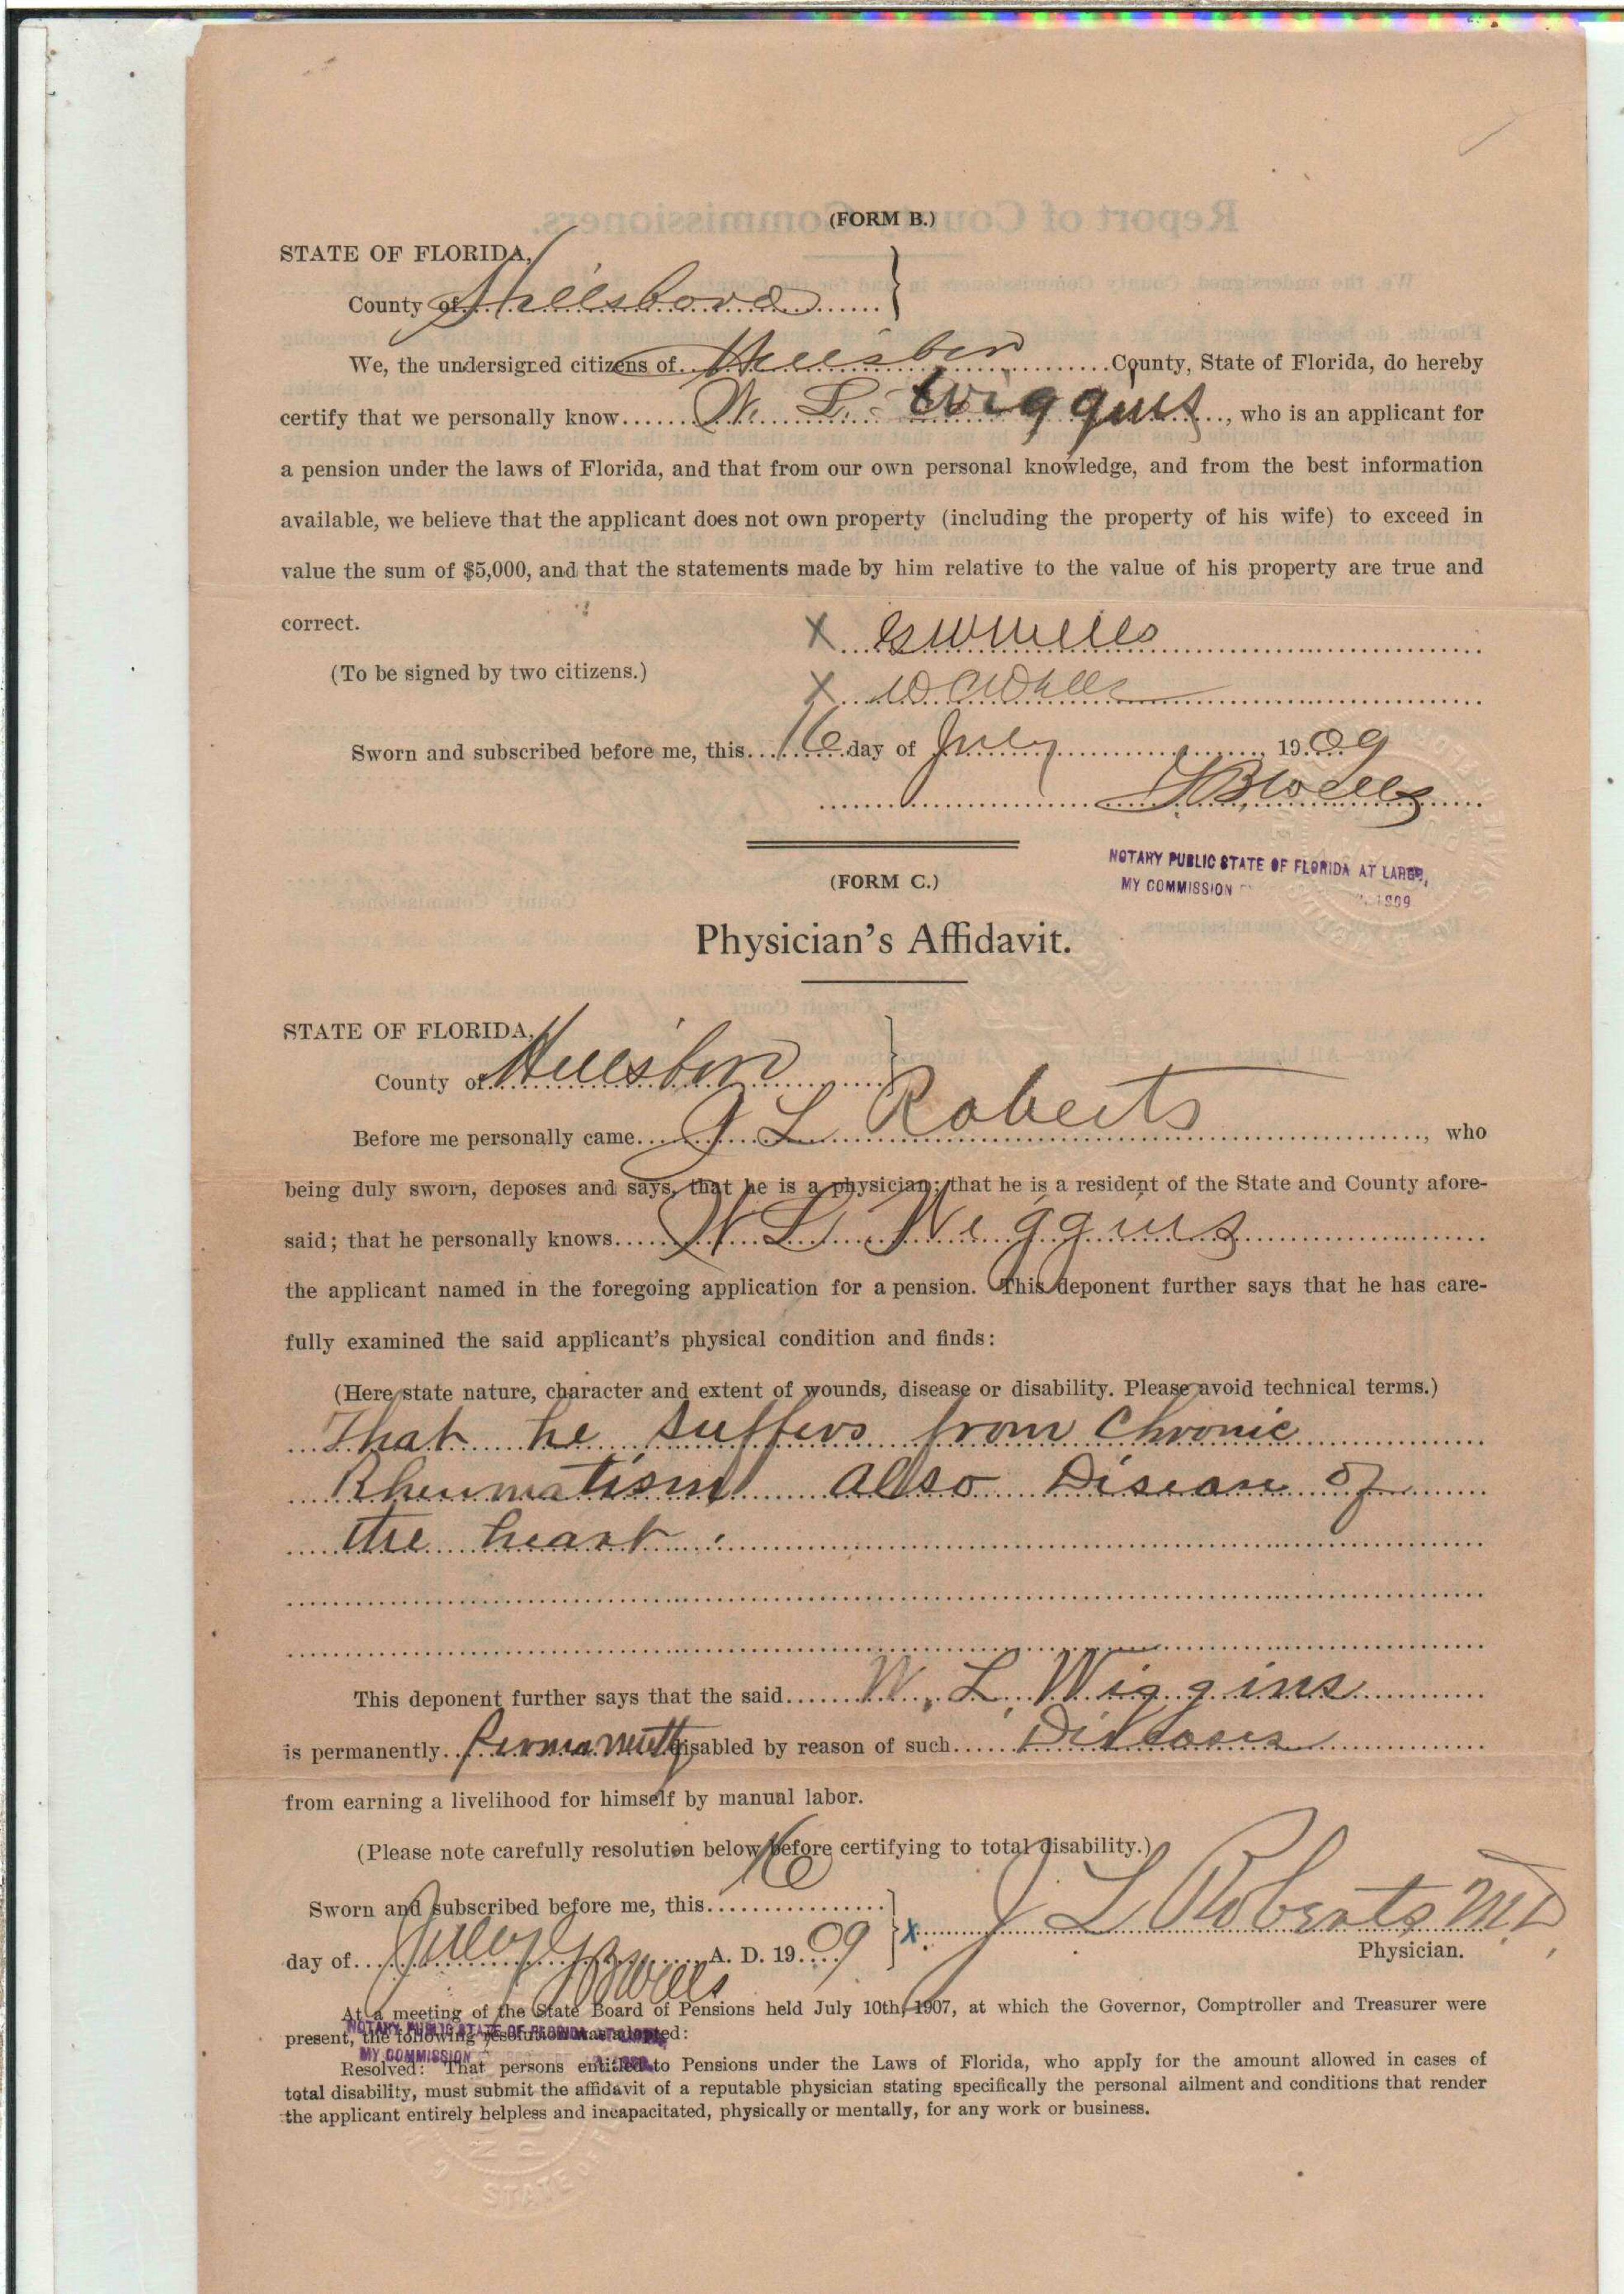 (FORM B.)
STATE OF FLORIDA,
County of Hillsboro
We, the undersigned citizens of Hillsboro County, State of Florida, do hereby
certify that we personally know W. L. Wiggins, who is an applicant for
a pension under the laws of Florida, and that from our own personal knowledge, and from the best information
available, we believe that the applicant does not own property (including the property of his wife) to exceed in
value the sum of $5,000, and that the statements made by him relative to the value of his property are true and
correct.
X
(To be signed by two citizens.)
X W C Wells
Sworn and subscribed before me, this 16 day of July 1909
Wells
NOTARY PUBLIC STATE OF FLORIDA AT LARGE,
MY COMMISSION 1909
(FORM C.)
Physician's Affidavit.
STATE OF FLORIDA,
County of Hillsboro
Before me personally came J L Roberts, who
being duly sworn, deposes and says, that he is a physician; that he is a resident of the State and County afore-
said; that he personally knows W L Wiggins
the applicant named in the foregoing application for a pension. This deponent further says that he has care-
fully examined the said applicant's physical condition and finds:
(Here state nature, character and extent of wounds, disease or disability. Please avoid technical terms.)
That he suffers from Chronic
Rheumatism also Disease of
the heart.
This deponent further says that the said W. L. Wiggins
is permanently permanently disabled by reason of such
from earning a livelihood for himself by manual labor.
(Please note carefully resolution below before certifying to total disability.)
Sworn and subscribed before me, this 16
day of July A. D. 1909
X J L Roberts MD
Physician.
Wells
At a meeting of the State Board of Pensions held July 10th, 1907, at which the Governor, Comptroller and Treasurer were
present, the following resolution was adopted:
NOTARY PUBLIC STATE OF FLORIDA AT LARGE,
MY COMMISSION
Resolved: That persons entitled to Pensions under the Laws of Florida, who apply for the amount allowed in cases of
total disability, must submit the affidavit of a reputable physician stating specifically the personal ailment and conditions that render
the applicant entirely helpless and incapacitated, physically or mentally, for any work or business.
STATE OF